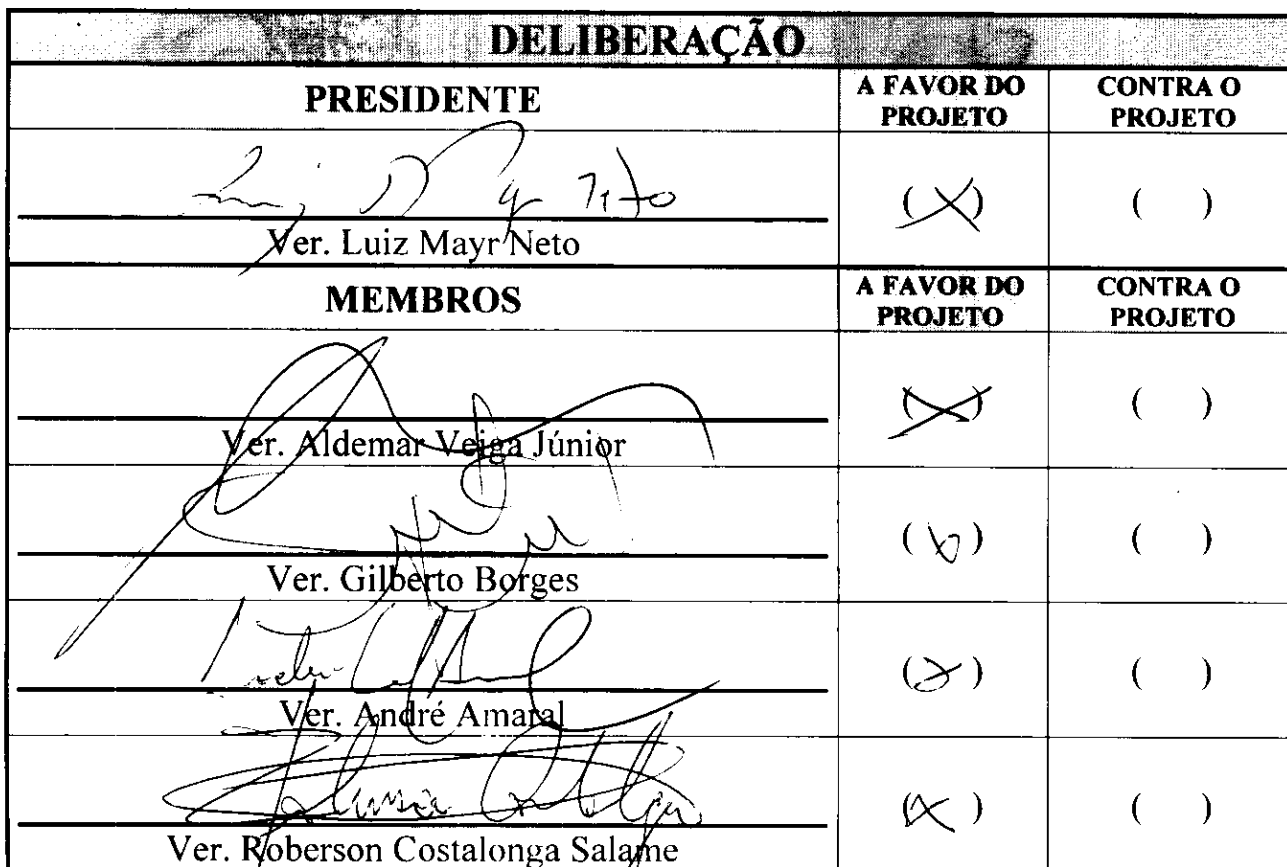 DELIBERAÇÃO
PRESIDENTE A FAVOR DO PROJETO CONTRA O PROJETO
Ver. Luiz Mayr Neto (X) ( )
MEMBROS A FAVOR DO PROJETO CONTRA O PROJETO
Ver. Aldemar Veiga Júnior (X) ( )
Ver. Gilberto Borges (X) ( )
Ver. André Amaral (X) ( )
Ver. Roberson Costalonga Salame (X) ( )